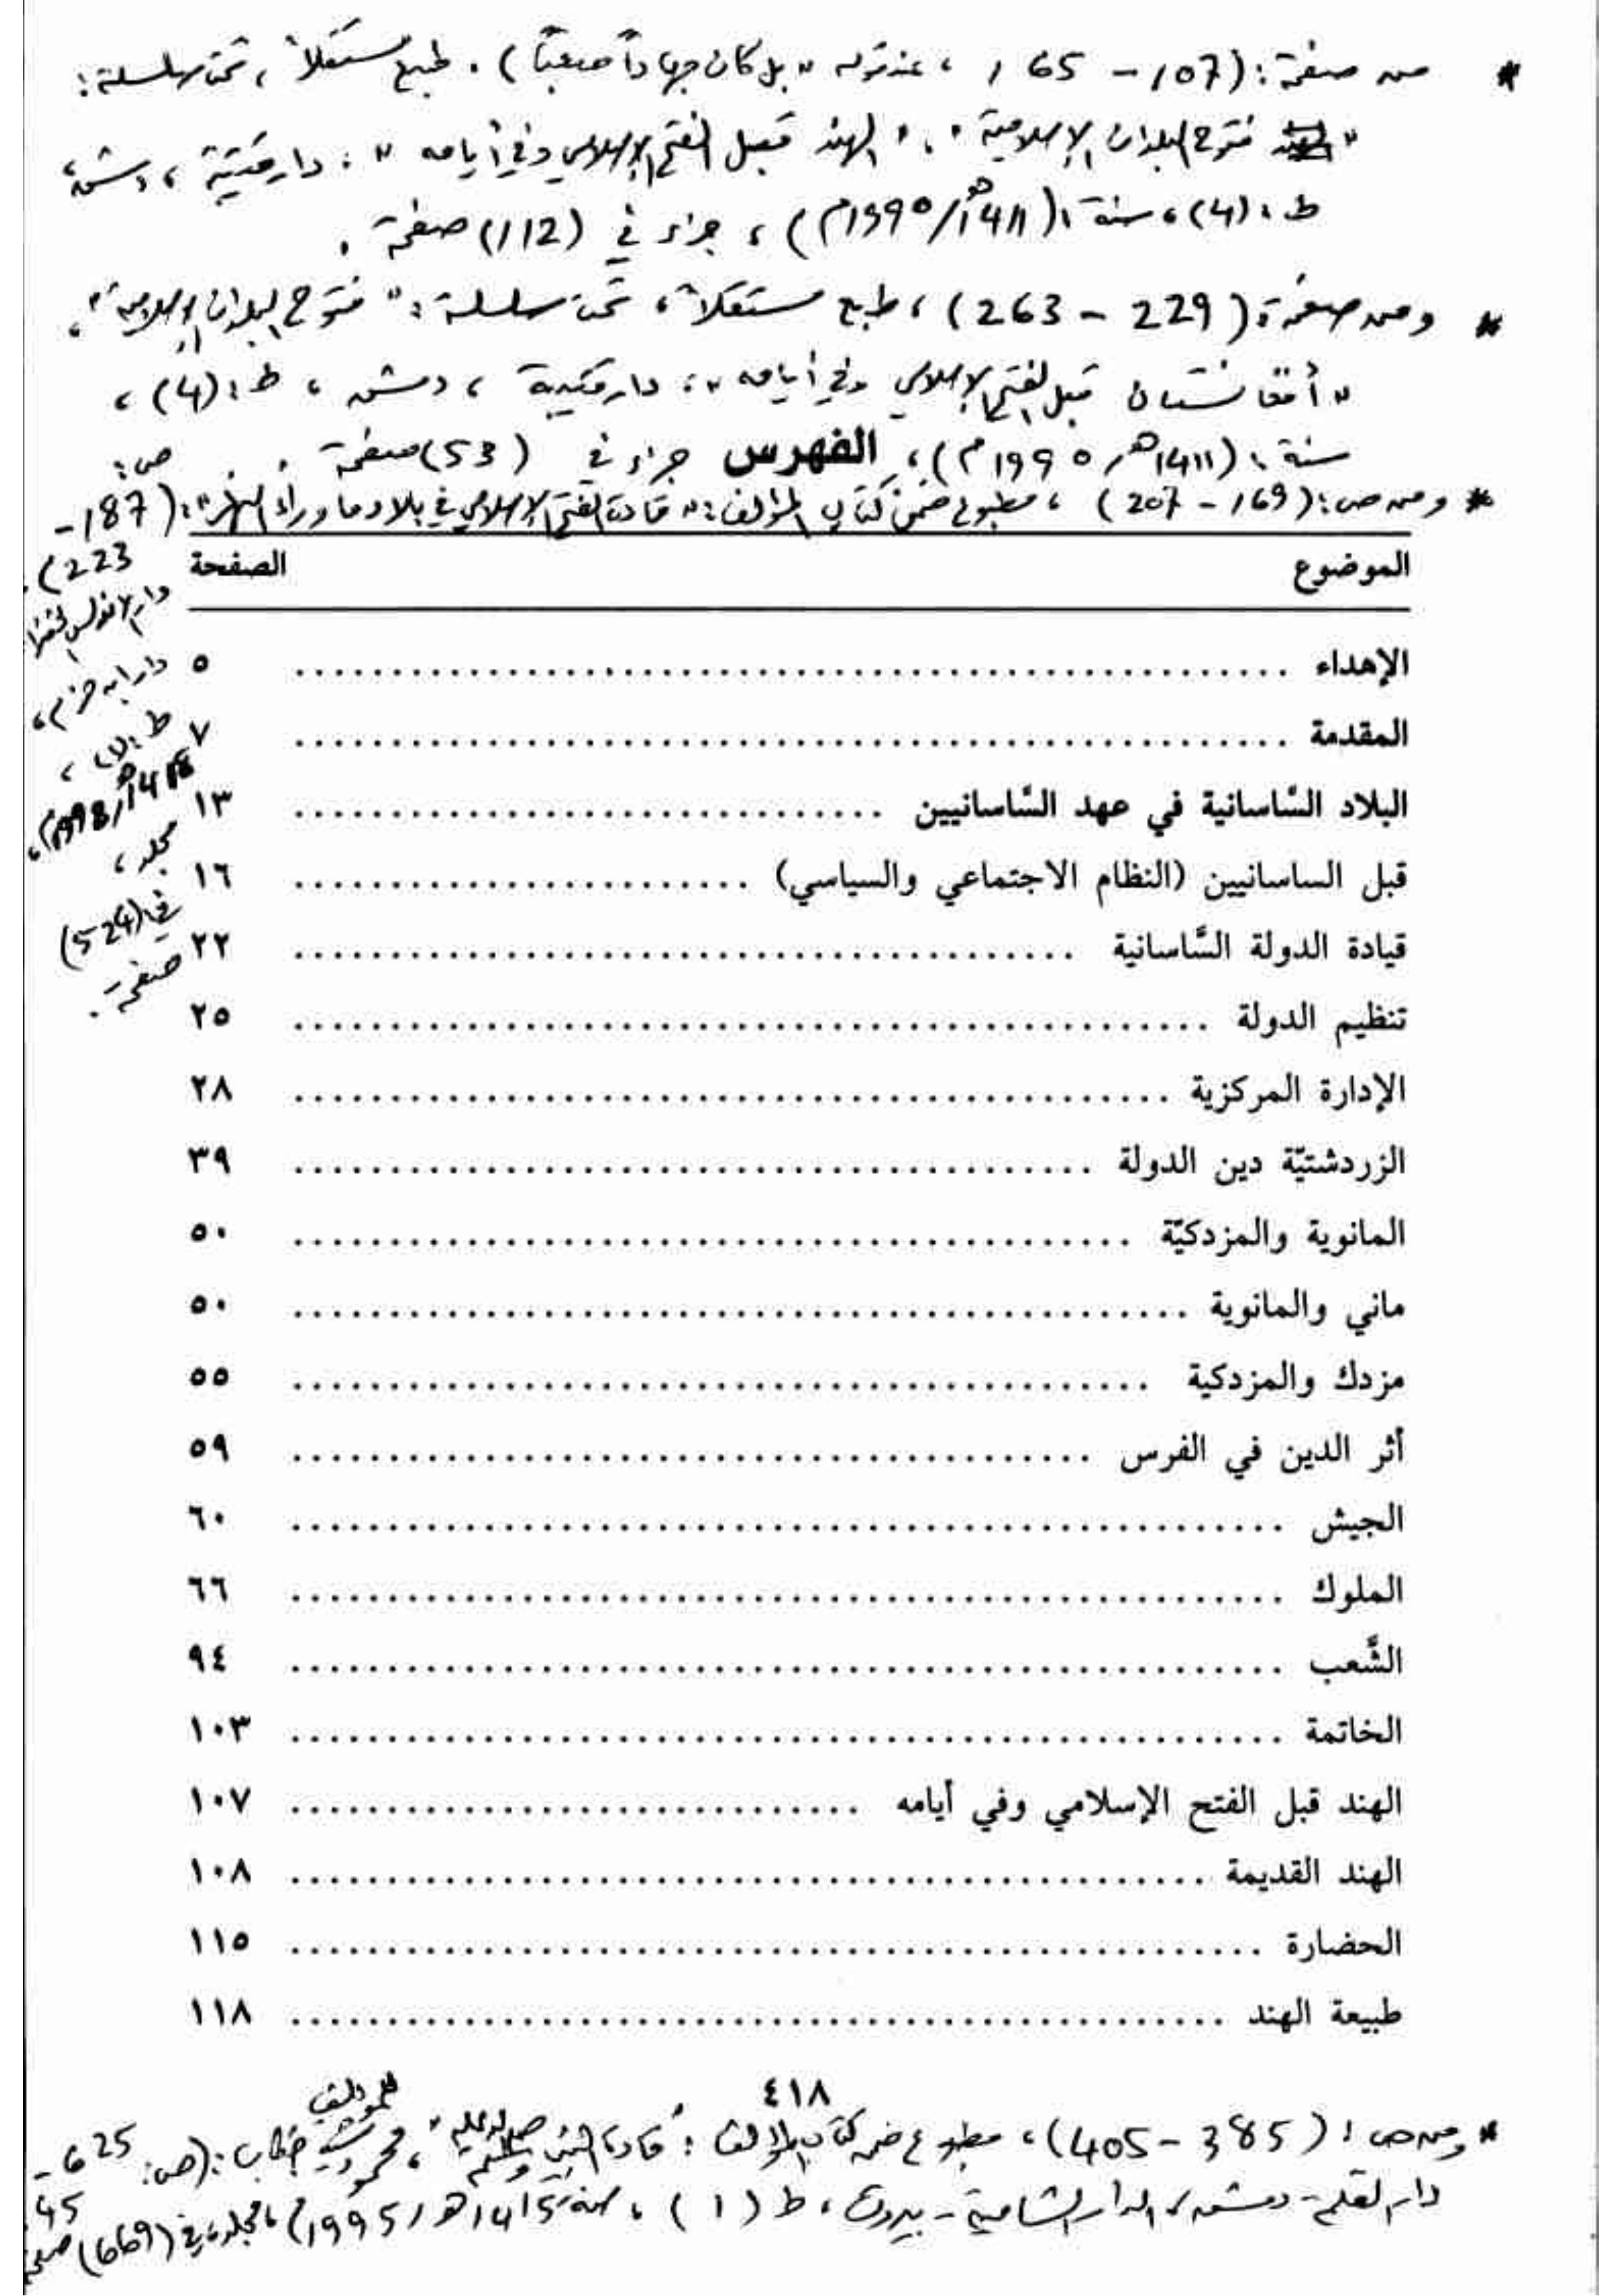 * من صفحة: (107 - 165، عند قوله "بل كان جهاداً صعباً). طبع مستقلاً، تحت سلسلة:
"فتوح البلدان الإسلامية"، "الهند قبل الفتح الإسلامي وفي أيامه": دار قتيبة، دمشق،
ط: (4)، سنة: (1411هـ/1990م)، جزء في (112) صفحة.
* ومن صفحة: (229 - 263)، طبع مستقلاً، تحت سلسلة: "فتوح البلدان الإسلامية"،
"أفغانستان قبل الفتح الإسلامي وفي أيامه"، دار قتيبة، دمشق، ط: (4)،
سنة: (1411هـ، 1990م)، جزء في (53) صفحة.
الفهرس
* ومن ص: (169 - 207)، مطبوع ضمن كتاب المؤلف: "قادة الفتح الإسلامي في بلاد ما وراء النهر": ص: (187 -
223).
دار الأندلس الخضراء
دار ابن حزم،
ط:
1418هـ/1998م،
مجلد،
في (524)
صفحة.
الموضوع الصفحة
الإهداء ٥
المقدمة ٧
البلاد السَّاسانية في عهد السَّاسانيين ١٣
قبل الساسانيين (النظام الاجتماعي والسياسي) ١٦
قيادة الدولة السَّاسانية ٢٢
تنظيم الدولة ٢٥
الإدارة المركزية ٢٨
الزردشتيّة دين الدولة ٣٩
المانوية والمزدكيّة ٥٠
ماني والمانوية ٥٠
مزدك والمزدكية ٥٥
أثر الدين في الفرس ٥٩
الجيش ٦٠
الملوك ٦٦
الشَّعب ٩٤
الخاتمة ١٠٣
الهند قبل الفتح الإسلامي وفي أيامه ١٠٧
الهند القديمة ١٠٨
الحضارة ١١٥
طبيعة الهند ١١٨
٤١٨
* ومن ص: (385 - 405)، مطبوع ضمن كتاب المؤلف: قادة النبي صلى الله عليه وسلم"، للمؤلف محمود شيت خطاب: (ص: 625 -
45
دار القلم - دمشق، الدار الشامية - بيروت، ط (1)، سنة 1415هـ/1995م)، مجلد، في (669) صفحة